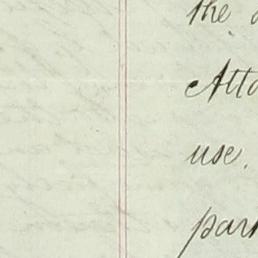 the
Atto
use.
par